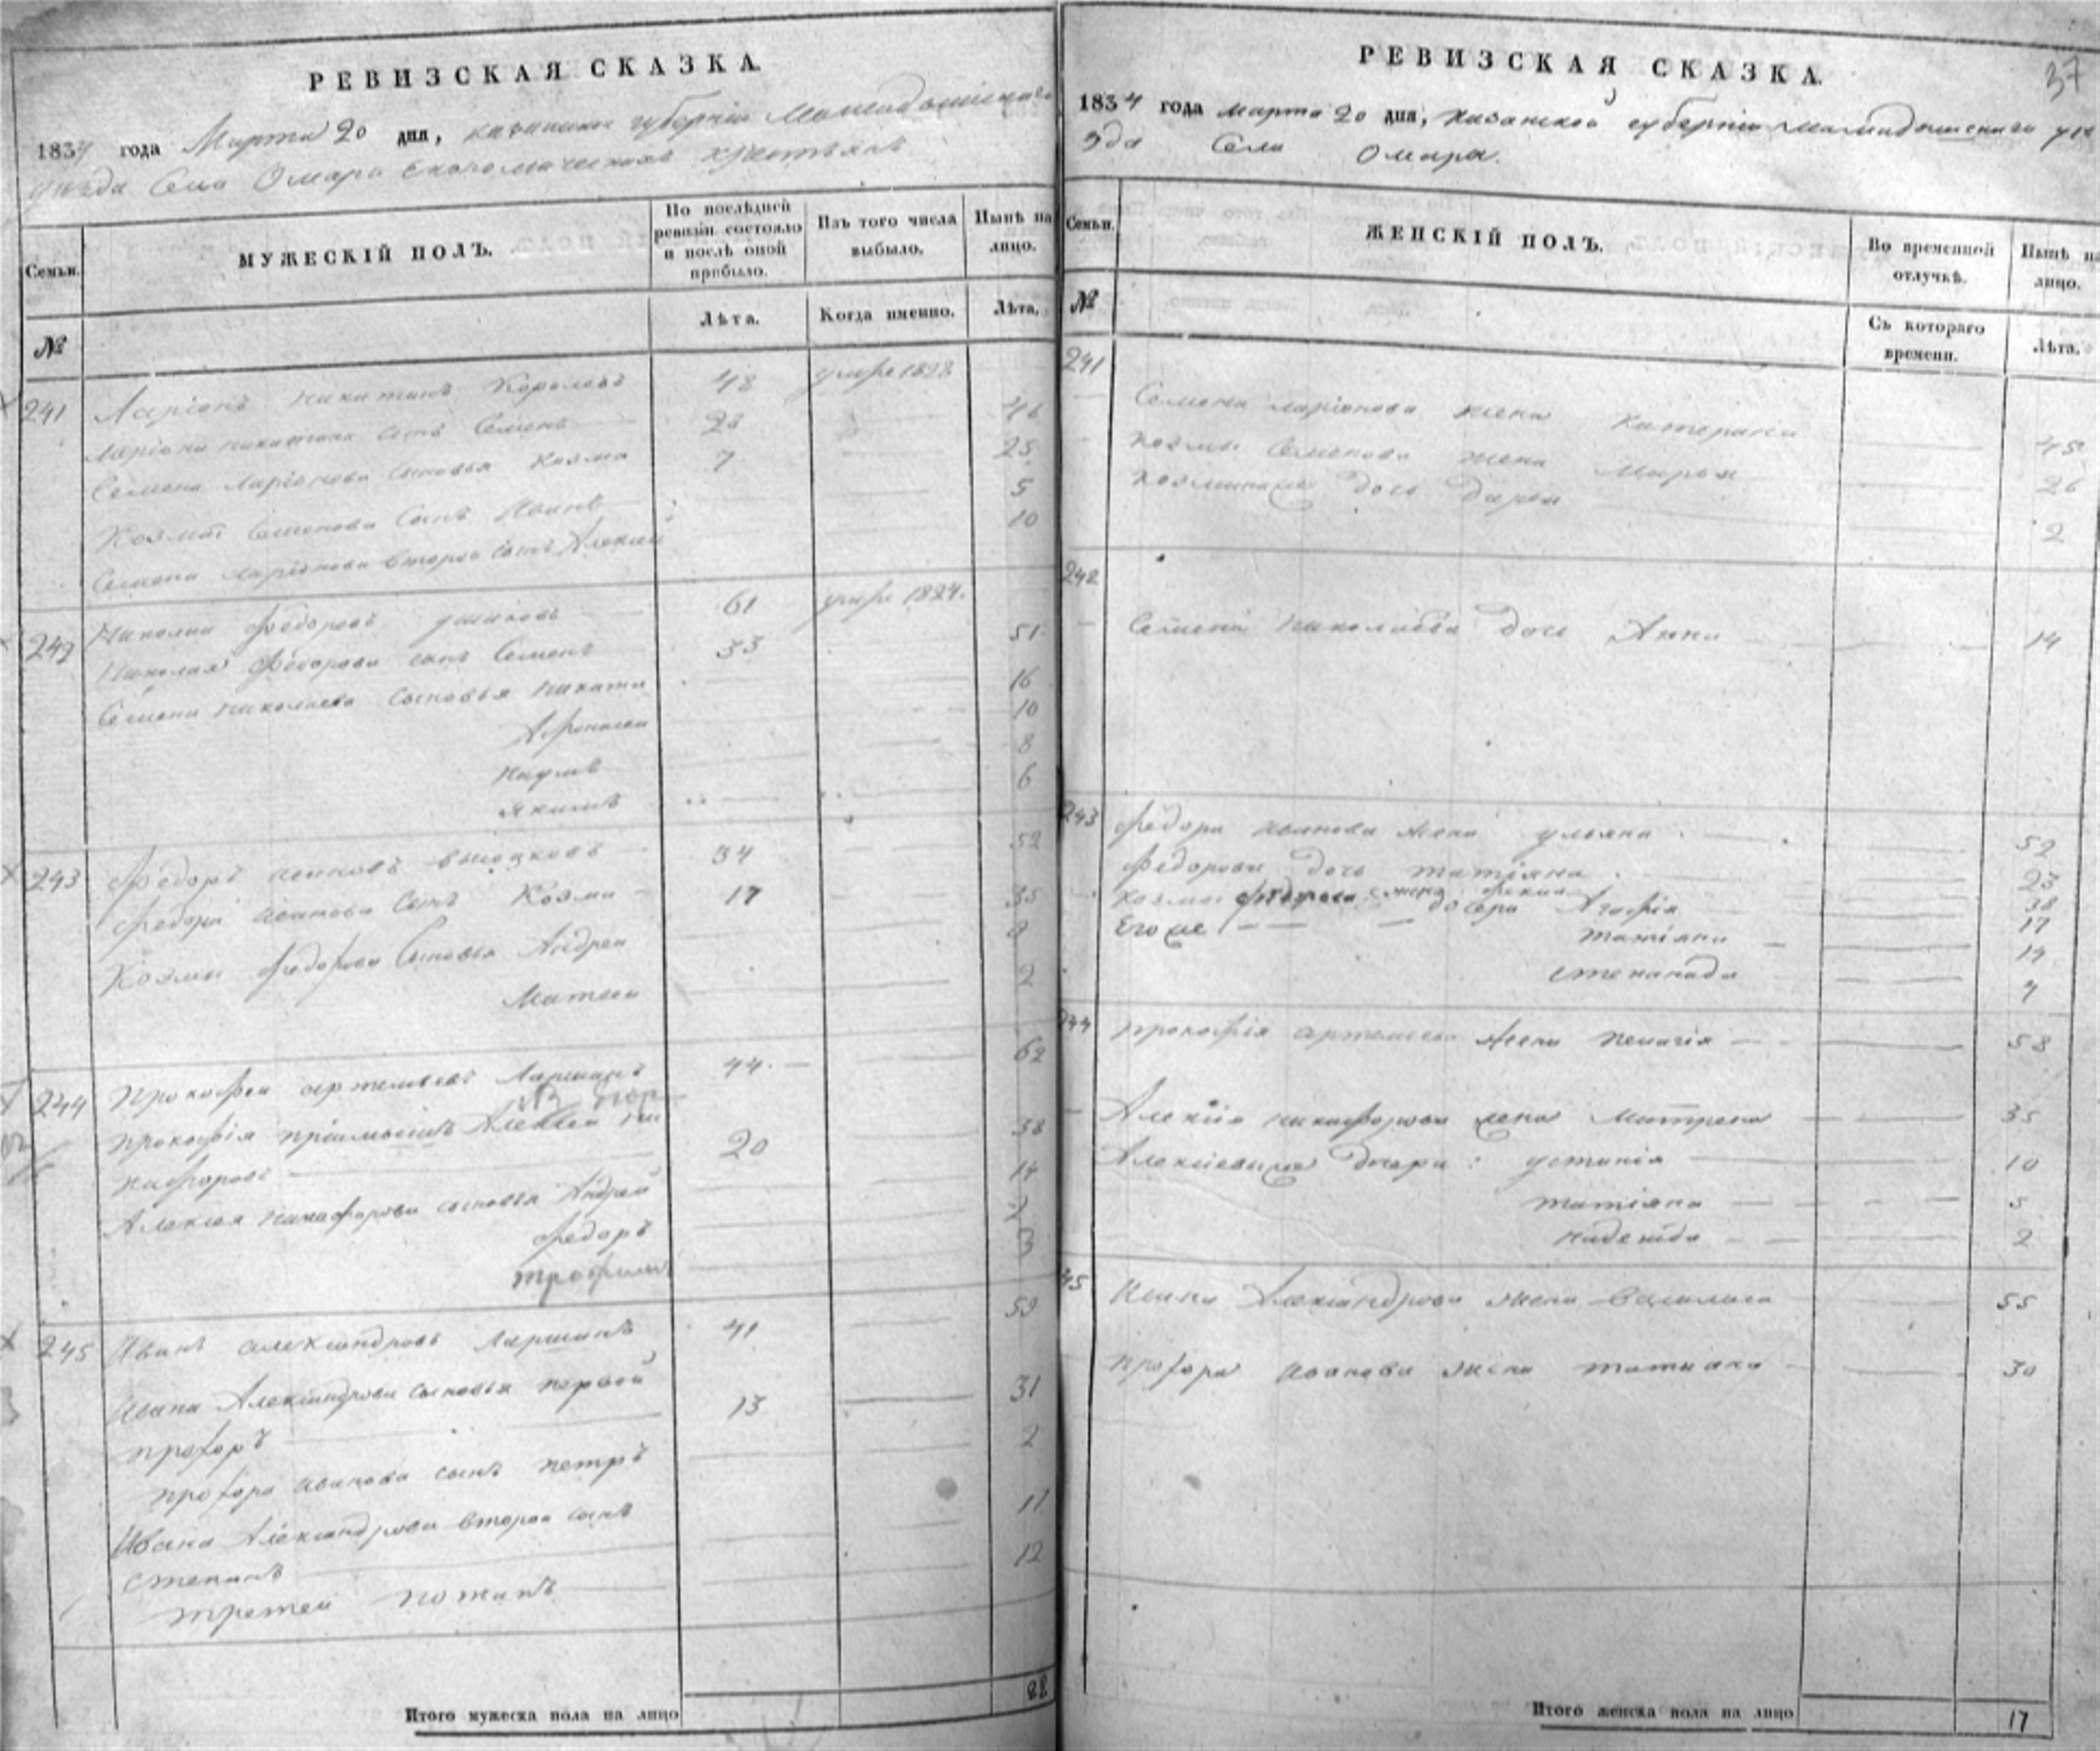 РЕВИЗСКАЯ СКАЗКА
1834 года Марта 20 дня, казанской губернiи Мамадышскаго
уезда Села Омара Економическихъ крестьянъ
Семьи.
МУЖЕСКІЙ ПОЛЪ.
По послѣдней ревизіи состояло и послѣ оной прибыло.
Изъ того числа выбыло.
Нынѣ на лицо.
№
Лѣта.
Когда именно.
Лѣта.
241 Ларiонъ Никитинъ Королевъ 48 умре 1828
Ларiона Никитина сынъ Семенъ 28 46
Семена Ларiонова сыновья Козма 7 25
Козмы Семенова сынъ Иванъ 5
Семена Ларiонова второй сынъ Алексей 10
242 Николай Федоровъ Ушаковъ 61 умре 1824.
Николая Федорова сынъ Семенъ 33 51
Семена Николаева сыновья Никита 16
Афонасей 10
Наумъ 8
Якимъ 6
243 Федоръ Ивановъ 34 52
Федора Иванова сынъ Козма 17 35
Козмы Федорова сыновья Андрей 8
Матвей 2
244 Прокофей Артемьевъ Ларшинъ 44. 62
Прокофiя прiимышъ Алексей Ни
кифоровъ 20 38
Алексея Никифорова сыновья Андрей 14
Федоръ 7
Трофимъ 3
245 Иванъ Александровъ Ларшинъ 41 59
Ивана Александрова сыновья первой
Прохоръ 13 31
Прохора Иванова сынъ Петръ 2
Ивана Александрова второй сынъ
Степанъ 17
третей Потапъ 12
Итого мужеска пола на лицо 22
37
РЕВИЗСКАЯ СКАЗКА.
1834 года марта 20 дня, казанской губернiи мамадышскаго уе
зда Села Омара.
Семьи.
ЖЕНСКІЙ ПОЛЪ.
Во временной отлучкѣ.
Нынѣ на лицо.
№
Съ котораго времени.
Лѣта.
241
Семена Ларiонова жена Катерина 45
Козмы Семенова жена Марья 26
Козминаже дочь Дарья 2
242
Семена Николаева дочь Анна 14
243 Федора Иванова жена Ульяна 52
Федорова дочь Татiяна 23
Козмы Федорова жена 38
Егоже дочери Агафiя 17
Татiяна 14
Степанида 7
244 Прокофiя Артемьева жена Пелагiя 58
Алексiя Никифорова жена Матрена 35
Алексiеваже дочери: Устинiя 10
Татiяна 5
Надежда 2
245 Ивана Александрова жена Василиса 55
Прохора Иванова жена Татияна 30
Итого женска пола на лицо 17